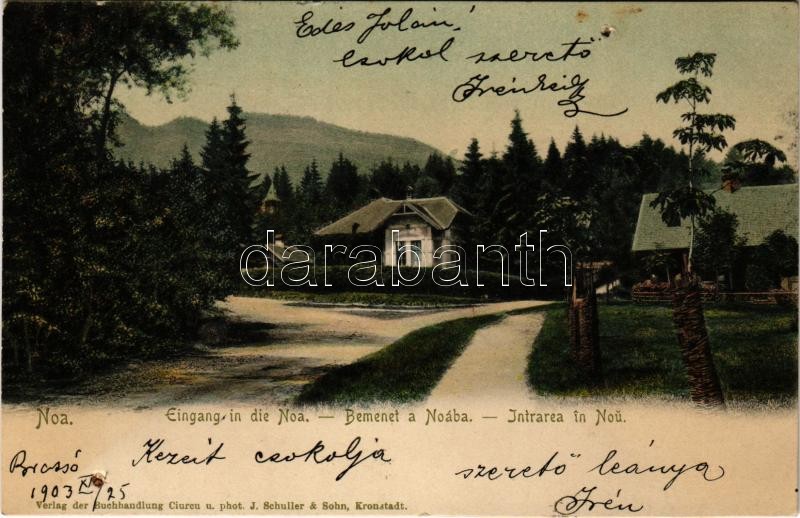 Edes Jolán!
csokol szerető
Irén
darabanth
Noa. Eingang in die Noa. — Bemenet a Noába. — Intrarea în Noŭ.
Kezeit csokolja
szerető leánya
Irén
Brassó
1903 25
Verlag der Buchhandlung Ciurcu u. phot. J. Schuller & Sohn, Kronstadt.